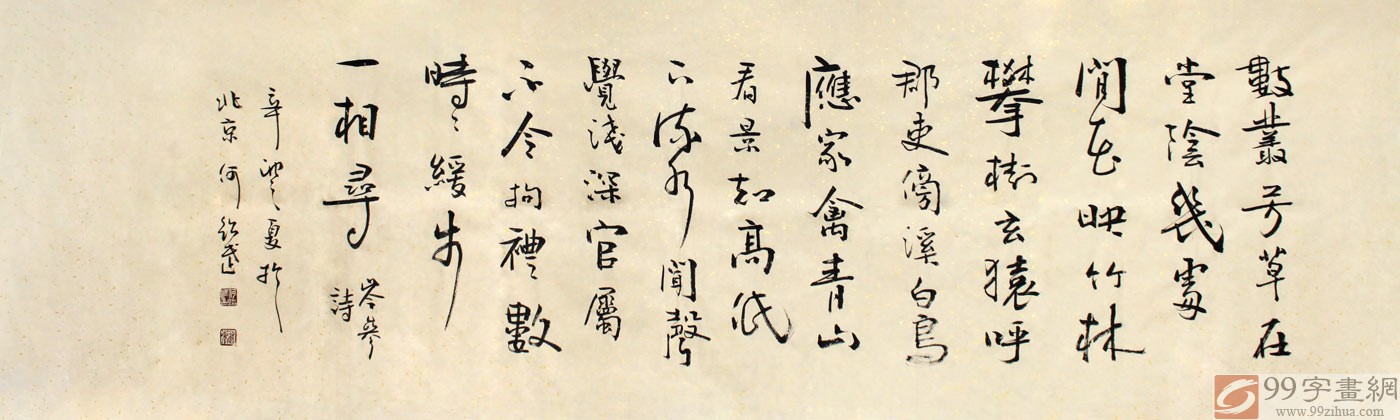 數叢芳草在
堂陰幾處
閒花映竹林
攀樹玄猿呼
郡吏傍溪白鳥
應家禽青山
看景知高低
下流水聞聲
覺淺深官屬
不令拘禮數
時〻緩步
一相尋
岑參
詩
辛夏於
北京何
99字畫網
www.99zihua.com